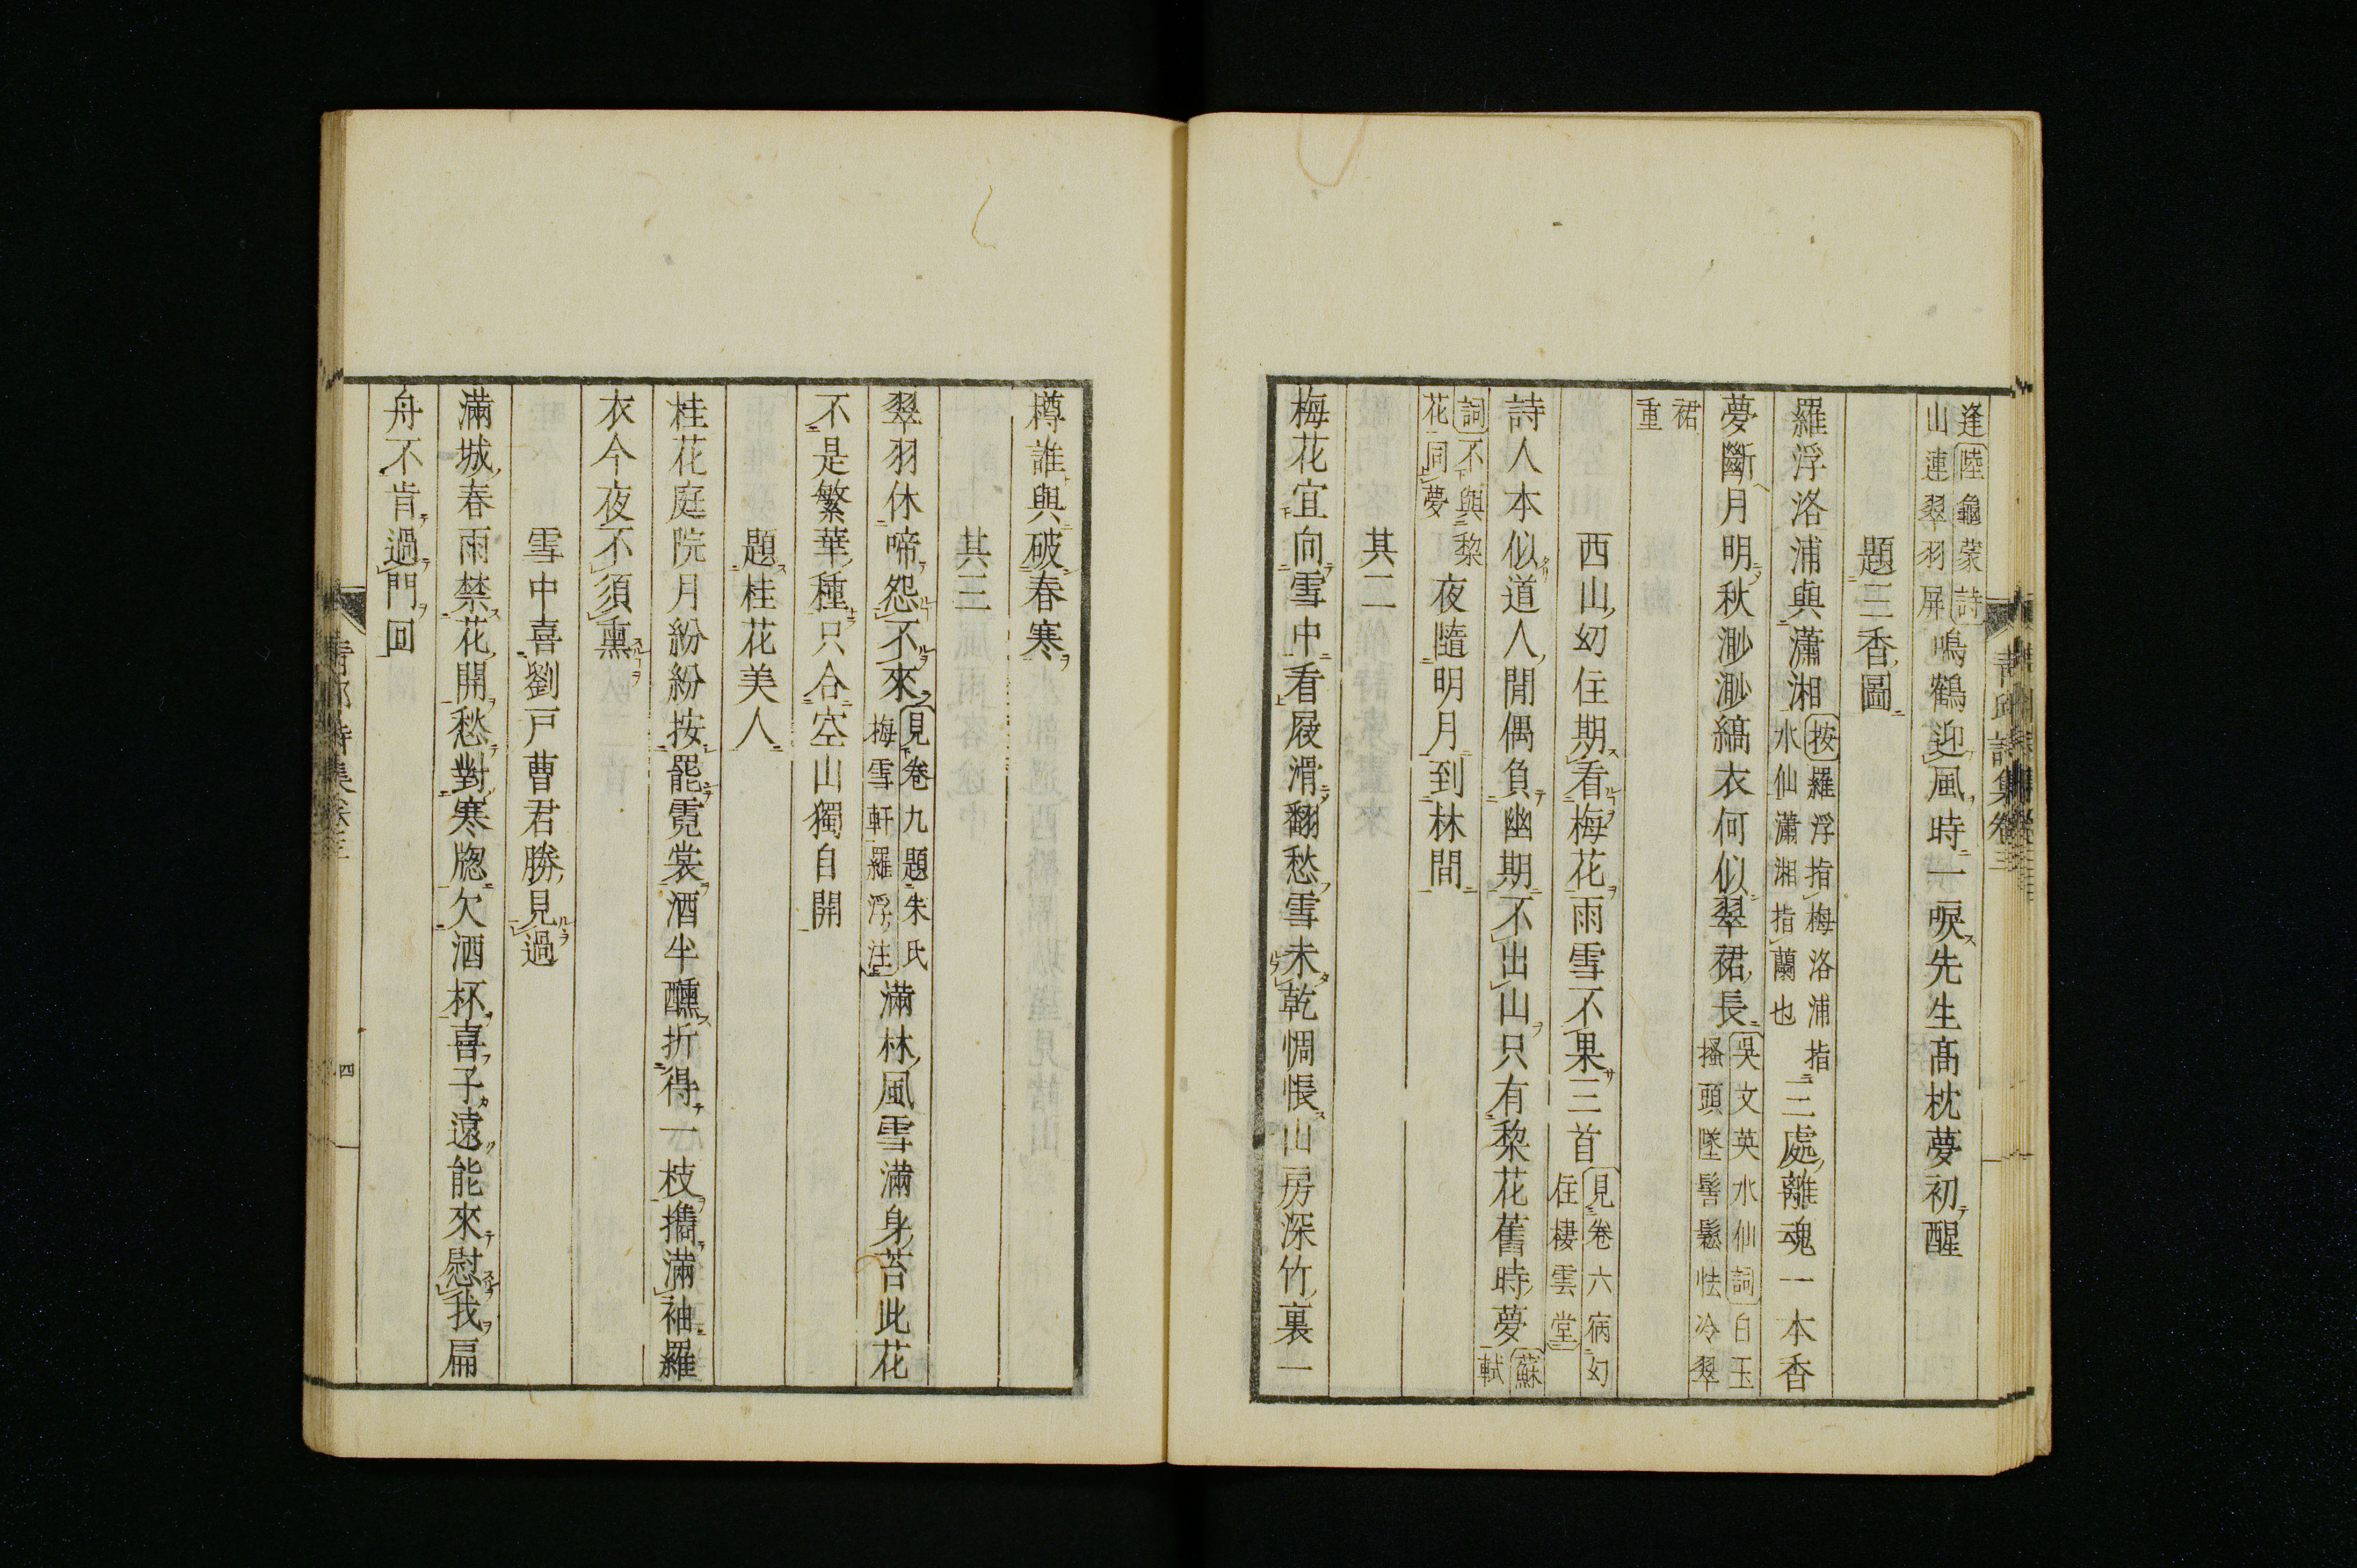 逢陸龜蒙詩
山連翠羽屏
鳴鶴迎風時一唳先生高枕夢初醒
題三香圖
羅浮洛浦與瀟湘
按羅浮指梅洛浦指
水仙瀟湘指蘭也
三處離魂一本香
夢斷月明秋渺渺縞衣何似翠裙長
吳文英水仙詞白玉
搔頭墜髻鬆怯冷翠
裙
重
西山幻住期看梅花雨雪不果三首
見卷六病幻
住棲雲堂
詩人本似道人閒偶負幽期不出山只有黎花舊時夢
蘇
軾
詞不與黎
花同夢
夜隨明月到林間
其二
梅花宜向雪中看屐滑翻愁雪未乾惆悵山房深竹裏一
樽誰與破春寒
其三
翠羽休啼怨不來
見卷九題朱氏
梅雪軒羅浮注
滿林風雪滿身苔此花
不是繁華種只合空山獨自開
題桂花美人
桂花庭院月紛紛按罷霓裳酒半醺折得一枝擕滿袖羅
衣今夜不須熏
雪中喜劉戸曹君勝見過
滿城春雨禁花開愁對寒牕欠酒杯喜子遠能來慰我扁
舟不肯過門回
四